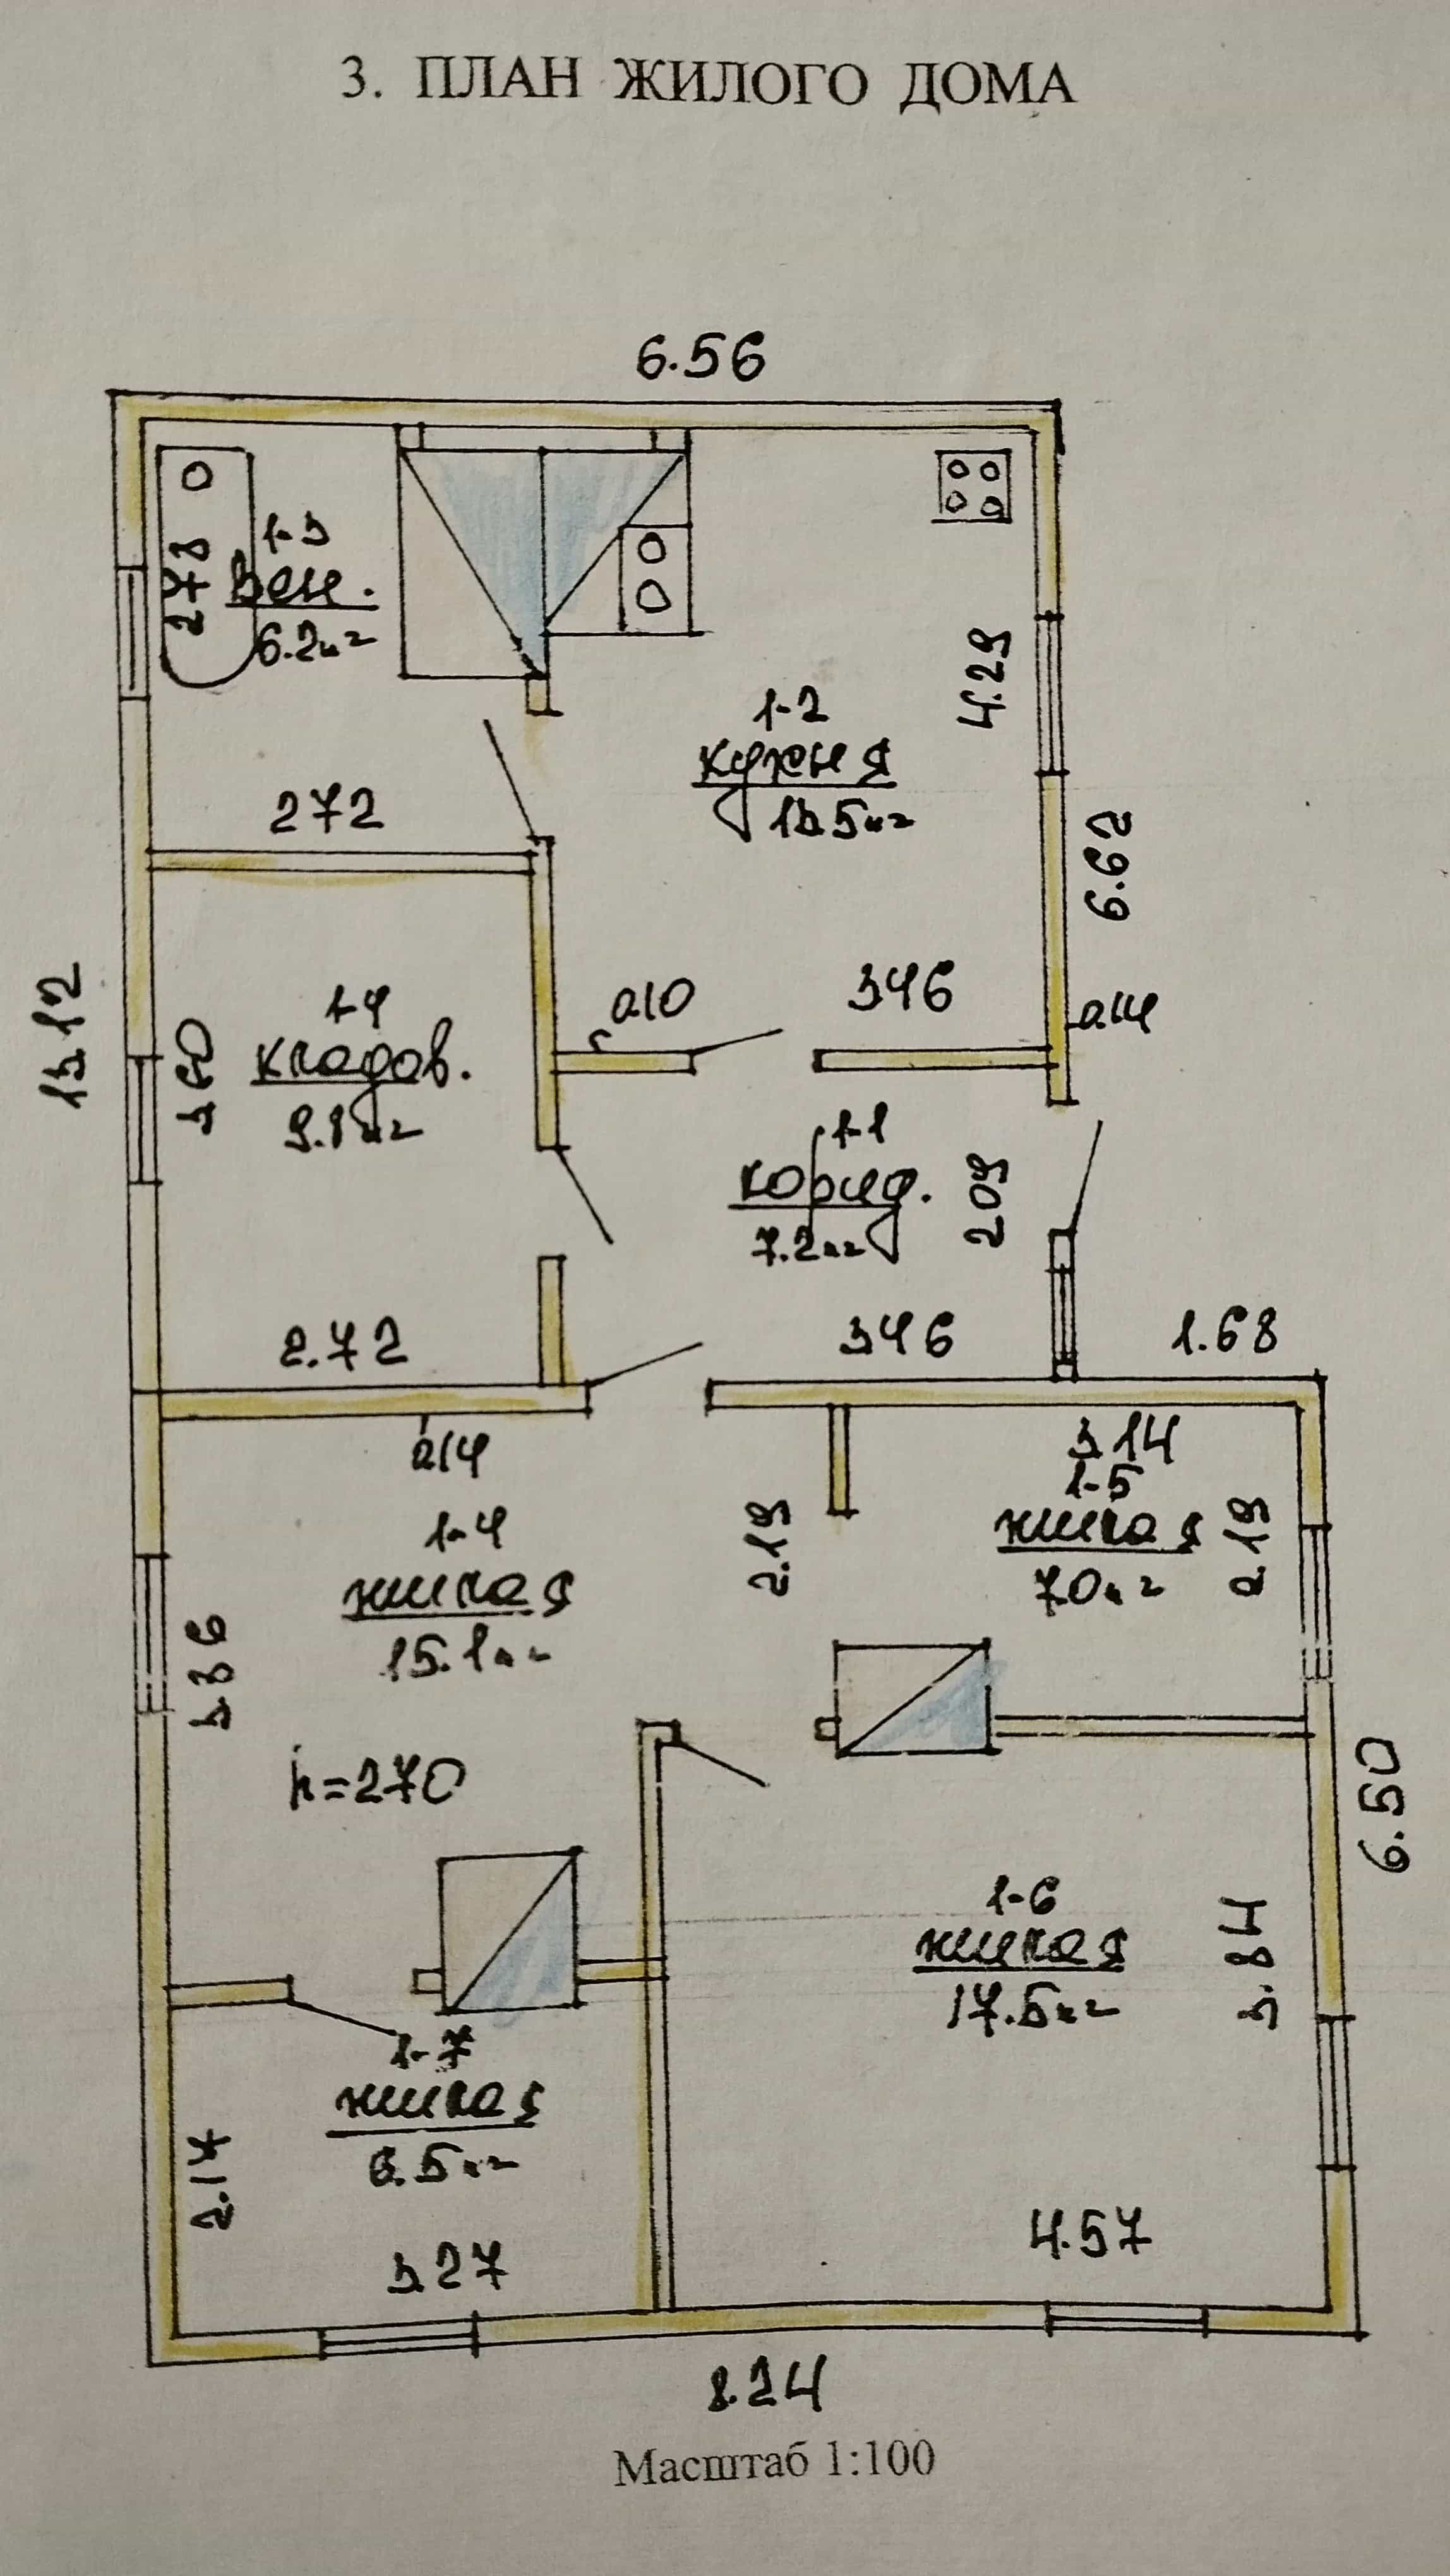 3. ПЛАН ЖИЛОГО ДОМА
6.56
1-3
273
6.2м²
4.29
1-2
кухня
13.5м²
272
6.62
346
0.10
0.14
13.12
1-4
кладов.
9.8м²
3.60
1-1
корид.
7.2м²
209
2.72
346
1.68
0.14
3.14
1-5
жилая
7.0м²
2.19
2.19
1-4
жилая
15.1м²
3.86
h=270
6.50
1-6
жилая
17.5м²
3.84
1-7
жилая
6.5м²
2.14
3.27
4.57
8.24
Масштаб 1:100